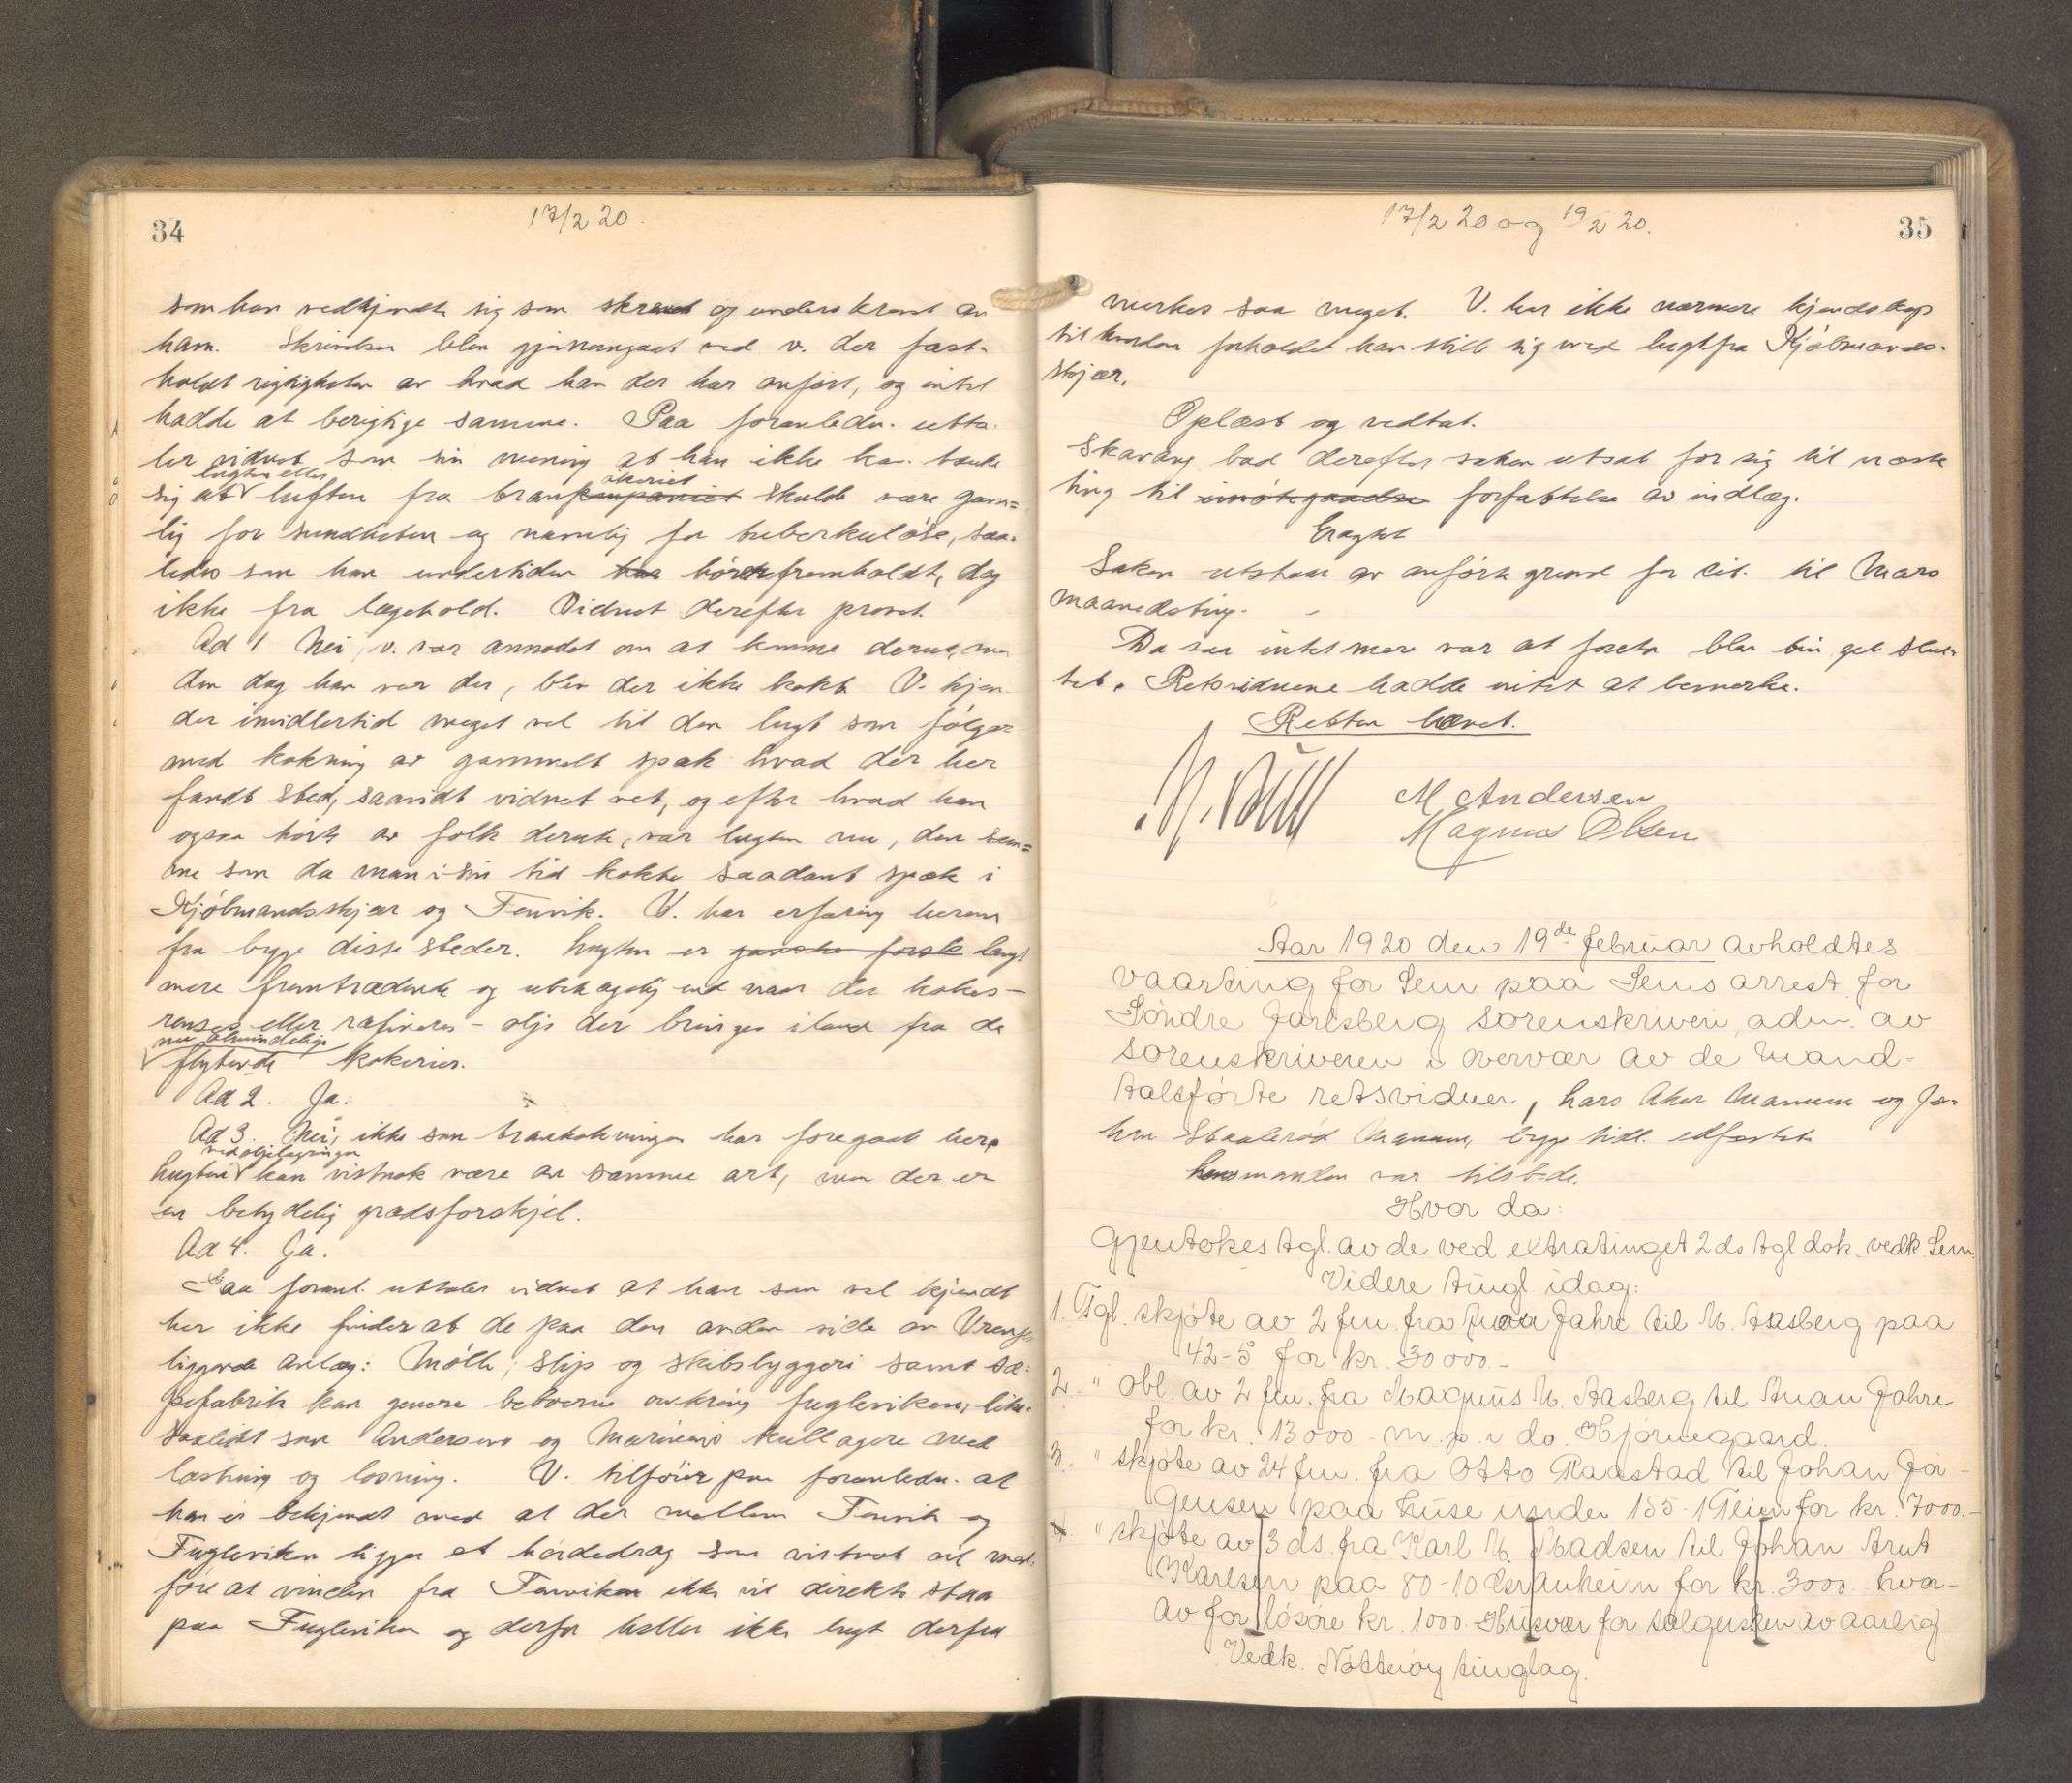 34
17/2 20.
som han vedkjendte sig som skrevet og underskrevet av
ham. Skrivelsen blev gjennemgaaet med v. der fast-
holdt rigtigheten av hvad han der har anført, og intet
hadde at berigtige samme. Paa foranledn. utta-
ler vidnet som sin mening at han ikke kan tænke
lugten eller okeriet
sig at luften fra trankompaniet skulde være gavn=
lig for sundheten og navnlig for tuberkuløse, saa-
ledes som han undertiden har hørt fremholdt, dog
ikke fra lægehold. Vidnet derefter provet.
Ad 1 Nei, v. var anmodet om at komme derut, men
den dag han var der, blev der ikke kokt. V. kjen-
der imidlertid meget vel til den lugt som følger
med kokning av gammelt spæk hvad der her
fandt sted, saavidt vidnet vet, og efter hvad han
ogsaa hørte av folk derute, var lugten nu, den sam=
me som da man i sin tid kokte saadant spæk i
Kjøbmandsskjær og Tenvik. V. har erfaring herom
fra begge disse steder. Lugten er ganske forsk langt
mere fremtrædende og ubehagelig end naar der kokes -
renses eller rafineres - olje der bringes iland fra de
nu almindelige
flytende kokerier.
Ad 2. Ja.
Ad 3. Nei, ikke som trankokningen har foregaat her,
ved oljelagringen
lugten kan vistnok være av samme art, men der er
en betydelig grædsforskjel.
Ad 4. Ja.
Paa foranl. uttaler vidnet at han som vel kjendt
her ikke finder at de paa den anden side av Vrengen
liggende anlæg: Mølle, slip og skibsbyggeri samt sæ-
pefabrik kan genere beboerne omkring Fuglevikens, like-
saalidt som Andersens og Marinens kullagere med
lastning og losning. V. tilføier paa foranledn. at
han er bekjendt med at der mellem Tenvik og
Fugleviken ligger et høidedrag som vistnok vil med-
føre at vinden fra Tenviken ikke vil direkte staa
paa Fugleviken og derfor heller ikke lugt derfra
17/2 20 og 19/2 20.
35
merkes saa meget. V. har ikke nærmere kjendskap
til hvordan forholdet har stillet sig med lugt fra Kjøbmands-
skjær.
Oplæst og vedtat.
Skarang bad derefter saken utsat for sig til næste
ting til imøtegaaelse forfattelse av indlæg.
Eragtet
Saken utstaar av anførte grund for cit. til Mars
maanedsting.
Da saa intet mere var at foreta blev tinget slut-
tet. Retsvidnene hadde intet at bemerke.
Retten hævet.
M Andersen
Magnus Olsen
Aar 1920 den 19de februar avholdtes
vaarting for Sem paa Sems arrest for
Søndre Jarlsberg sorenskriveri, adm. av
sorenskriveren i overvær av de mand-
talsførte retsvidner, Lars Aker Manum og Jo-
han Staalerød Manum, begge tidl. edfæstet
Lensmanden var tilstede.
Hvor da:
Gjentokes tgl. av de ved extratinget 2 ds tgl dok. vedk. Sem
Videre tingl. idag:
1. Tgl. skjøte av 2 jan. fra Anan Jahre til M. Aasberg paa
42-5 for kr. 30000.-
2. " obl. av 2 jan. fra Magnus M. Aasberg til Anan Jahre
for kr. 13000.- m. p. i do. Hjørnegaard.
3. " skjøte av 24 jan. fra Otto Raastad til Johan Jør-
gensen paa Huse under 155-1 Teien for kr. 7000.-
4. " skjøte av 3 ds. fra Karl M. Madsen til Johan Arnt
Karlsen paa 80-10 Granheim for kr. 3000.- hvor-
av for løsøre kr. 1000. Husvær for sælgersken av aarlig
Vedk. Nøtterøy tinglag.